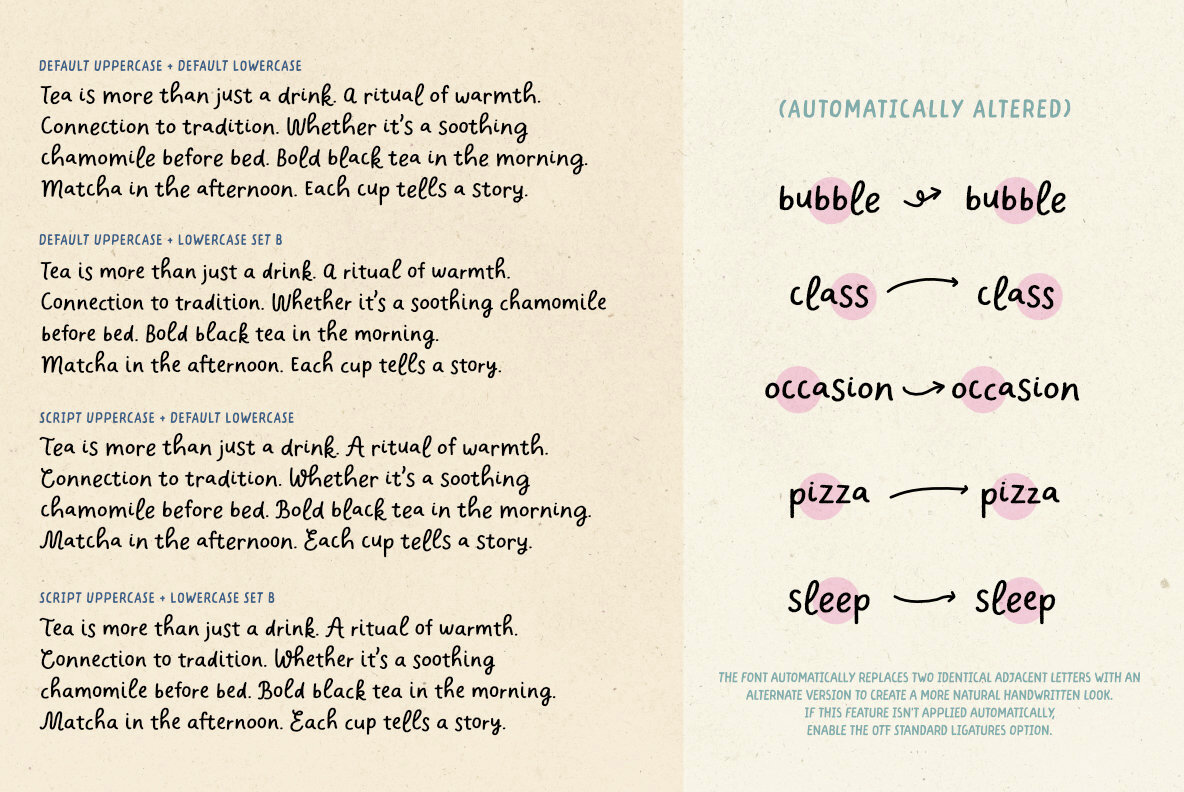 DEFAULT UPPERCASE + DEFAULT LOWERCASE
Tea is more than just a drink. A ritual of warmth.
Connection to tradition. Whether it's a soothing
chamomile before bed. Bold black tea in the morning.
Matcha in the afternoon. Each cup tells a story.
DEFAULT UPPERCASE + LOWERCASE SET B
Tea is more than just a drink. A ritual of warmth.
Connection to tradition. Whether it's a soothing chamomile
before bed. Bold black tea in the morning.
Matcha in the afternoon. Each cup tells a story.
SCRIPT UPPERCASE + DEFAULT LOWERCASE
Tea is more than just a drink. A ritual of warmth.
Connection to tradition. Whether it's a soothing
chamomile before bed. Bold black tea in the morning.
Matcha in the afternoon. Each cup tells a story.
SCRIPT UPPERCASE + LOWERCASE SET B
Tea is more than just a drink. A ritual of warmth.
Connection to tradition. Whether it's a soothing
chamomile before bed. Bold black tea in the morning.
Matcha in the afternoon. Each cup tells a story.
(AUTOMATICALLY ALTERED)
bubble bubble
class class
occasion occasion
pizza pizza
sleep sleep
THE FONT AUTOMATICALLY REPLACES TWO IDENTICAL ADJACENT LETTERS WITH AN
ALTERNATE VERSION TO CREATE A MORE NATURAL HANDWRITTEN LOOK.
IF THIS FEATURE ISN'T APPLIED AUTOMATICALLY,
ENABLE THE OTF STANDARD LIGATURES OPTION.